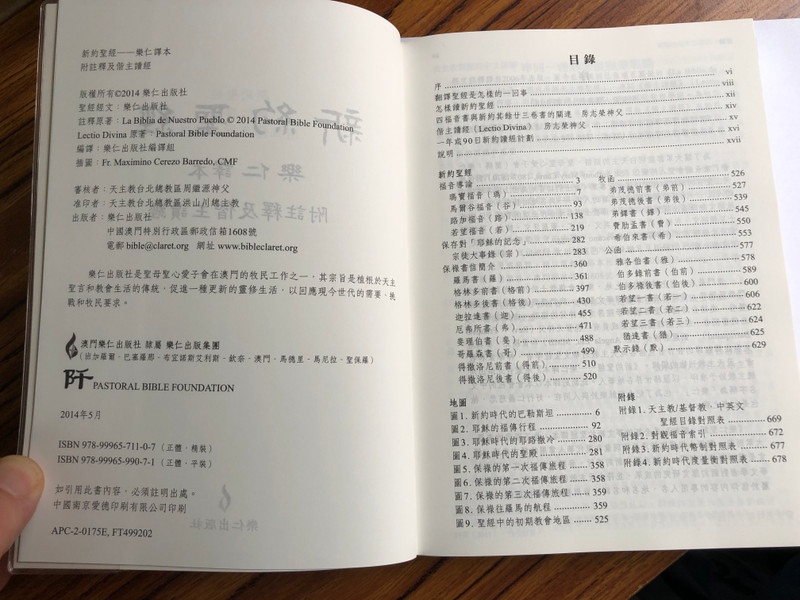 新約聖經——樂仁譯本
附註釋及偕主讀經
版權所有©2014 樂仁出版社
聖經經文：樂仁出版社
註釋原著：La Biblia de Nuestro Pueblo © 2014 Pastoral Bible Foundation
Lectio Divina 原著：Pastoral Bible Foundation
編譯：樂仁出版社編譯組
插圖：Fr. Maximino Cerezo Barredo, CMF
審核者：天主教台北總教區周繼源神父
准印者：天主教台北總教區洪山川總主教
出版者：樂仁出版社
中國澳門特別行政區郵政信箱1608號
電郵 bible@claret.org 網址 www.bibleclaret.org
樂仁出版社是聖母聖心愛子會在澳門的牧民工作之一，其宗旨是植根於天主
聖言和教會生活的傳統，促進一種更新的靈修生活，以回應現今世代的需要、挑
戰和牧民要求。
澳門樂仁出版社 隸屬 樂仁出版集團
(班加羅爾、巴塞羅那、布宜諾斯艾利斯、欽奈、澳門、馬德里、馬尼拉、聖保羅)
PASTORAL BIBLE FOUNDATION
2014年5月
ISBN 978-99965-711-0-7（正體，精裝）
ISBN 978-99965-990-7-1（正體，平裝）
如引用此書內容，必須註明出處。
中國南京愛德印刷有限公司印刷
APC-2-0175E, FT499202
目錄
序 vi
翻譯聖經是怎樣的一回事 viii
怎樣讀新約聖經 xii
四福音書與新約其餘廿三卷書的關連 房志榮神父 xiv
偕主讀經（Lectio Divina）房志榮神父 xv
一年或90日新約讀經計劃 xvi
說明 xvii
新約聖經
福音導論 3
瑪竇福音（瑪） 7
馬爾谷福音（谷） 93
路加福音（路） 138
若望福音（若） 219
保存對「耶穌的記念」 282
宗徒大事錄（宗） 283
保祿書信簡介 360
羅馬書（羅） 361
格林多前書（格前） 397
格林多後書（格後） 430
迦拉達書（迦） 455
厄弗所書（弗） 471
斐理伯書（斐） 488
哥羅森書（哥） 499
得撒洛尼前書（得前） 510
得撒洛尼後書（得後） 520
牧函 526
弟茂德前書（弟前） 527
弟茂德後書（弟後） 539
弟鐸書（鐸） 545
費肋孟書（費） 550
希伯來書（希） 553
公函 577
雅各伯書（雅） 578
伯多祿前書（伯前） 589
伯多祿後書（伯後） 600
若望一書（若一） 606
若望二書（若二） 622
若望三書（若三） 624
猶達書（猶） 625
默示錄（默） 629
地圖
圖1. 新約時代的巴勒斯坦 6
圖2. 耶穌的福傳行程 92
圖3. 耶穌時代的耶路撒冷 280
圖4. 耶穌時代的聖殿 281
圖5. 保祿的第一次福傳旅程 358
圖6. 保祿的第二次福傳旅程 358
圖7. 保祿的第三次福傳旅程 359
圖8. 保祿往羅馬的航程 359
圖9. 聖經中的初期教會地區 525
附錄
附錄1. 天主教/基督教，中英文
聖經目錄對照表 669
附錄2. 對觀福音索引 672
附錄3. 新約時代幣制對照表 677
附錄4. 新約時代度量衡對照表 678